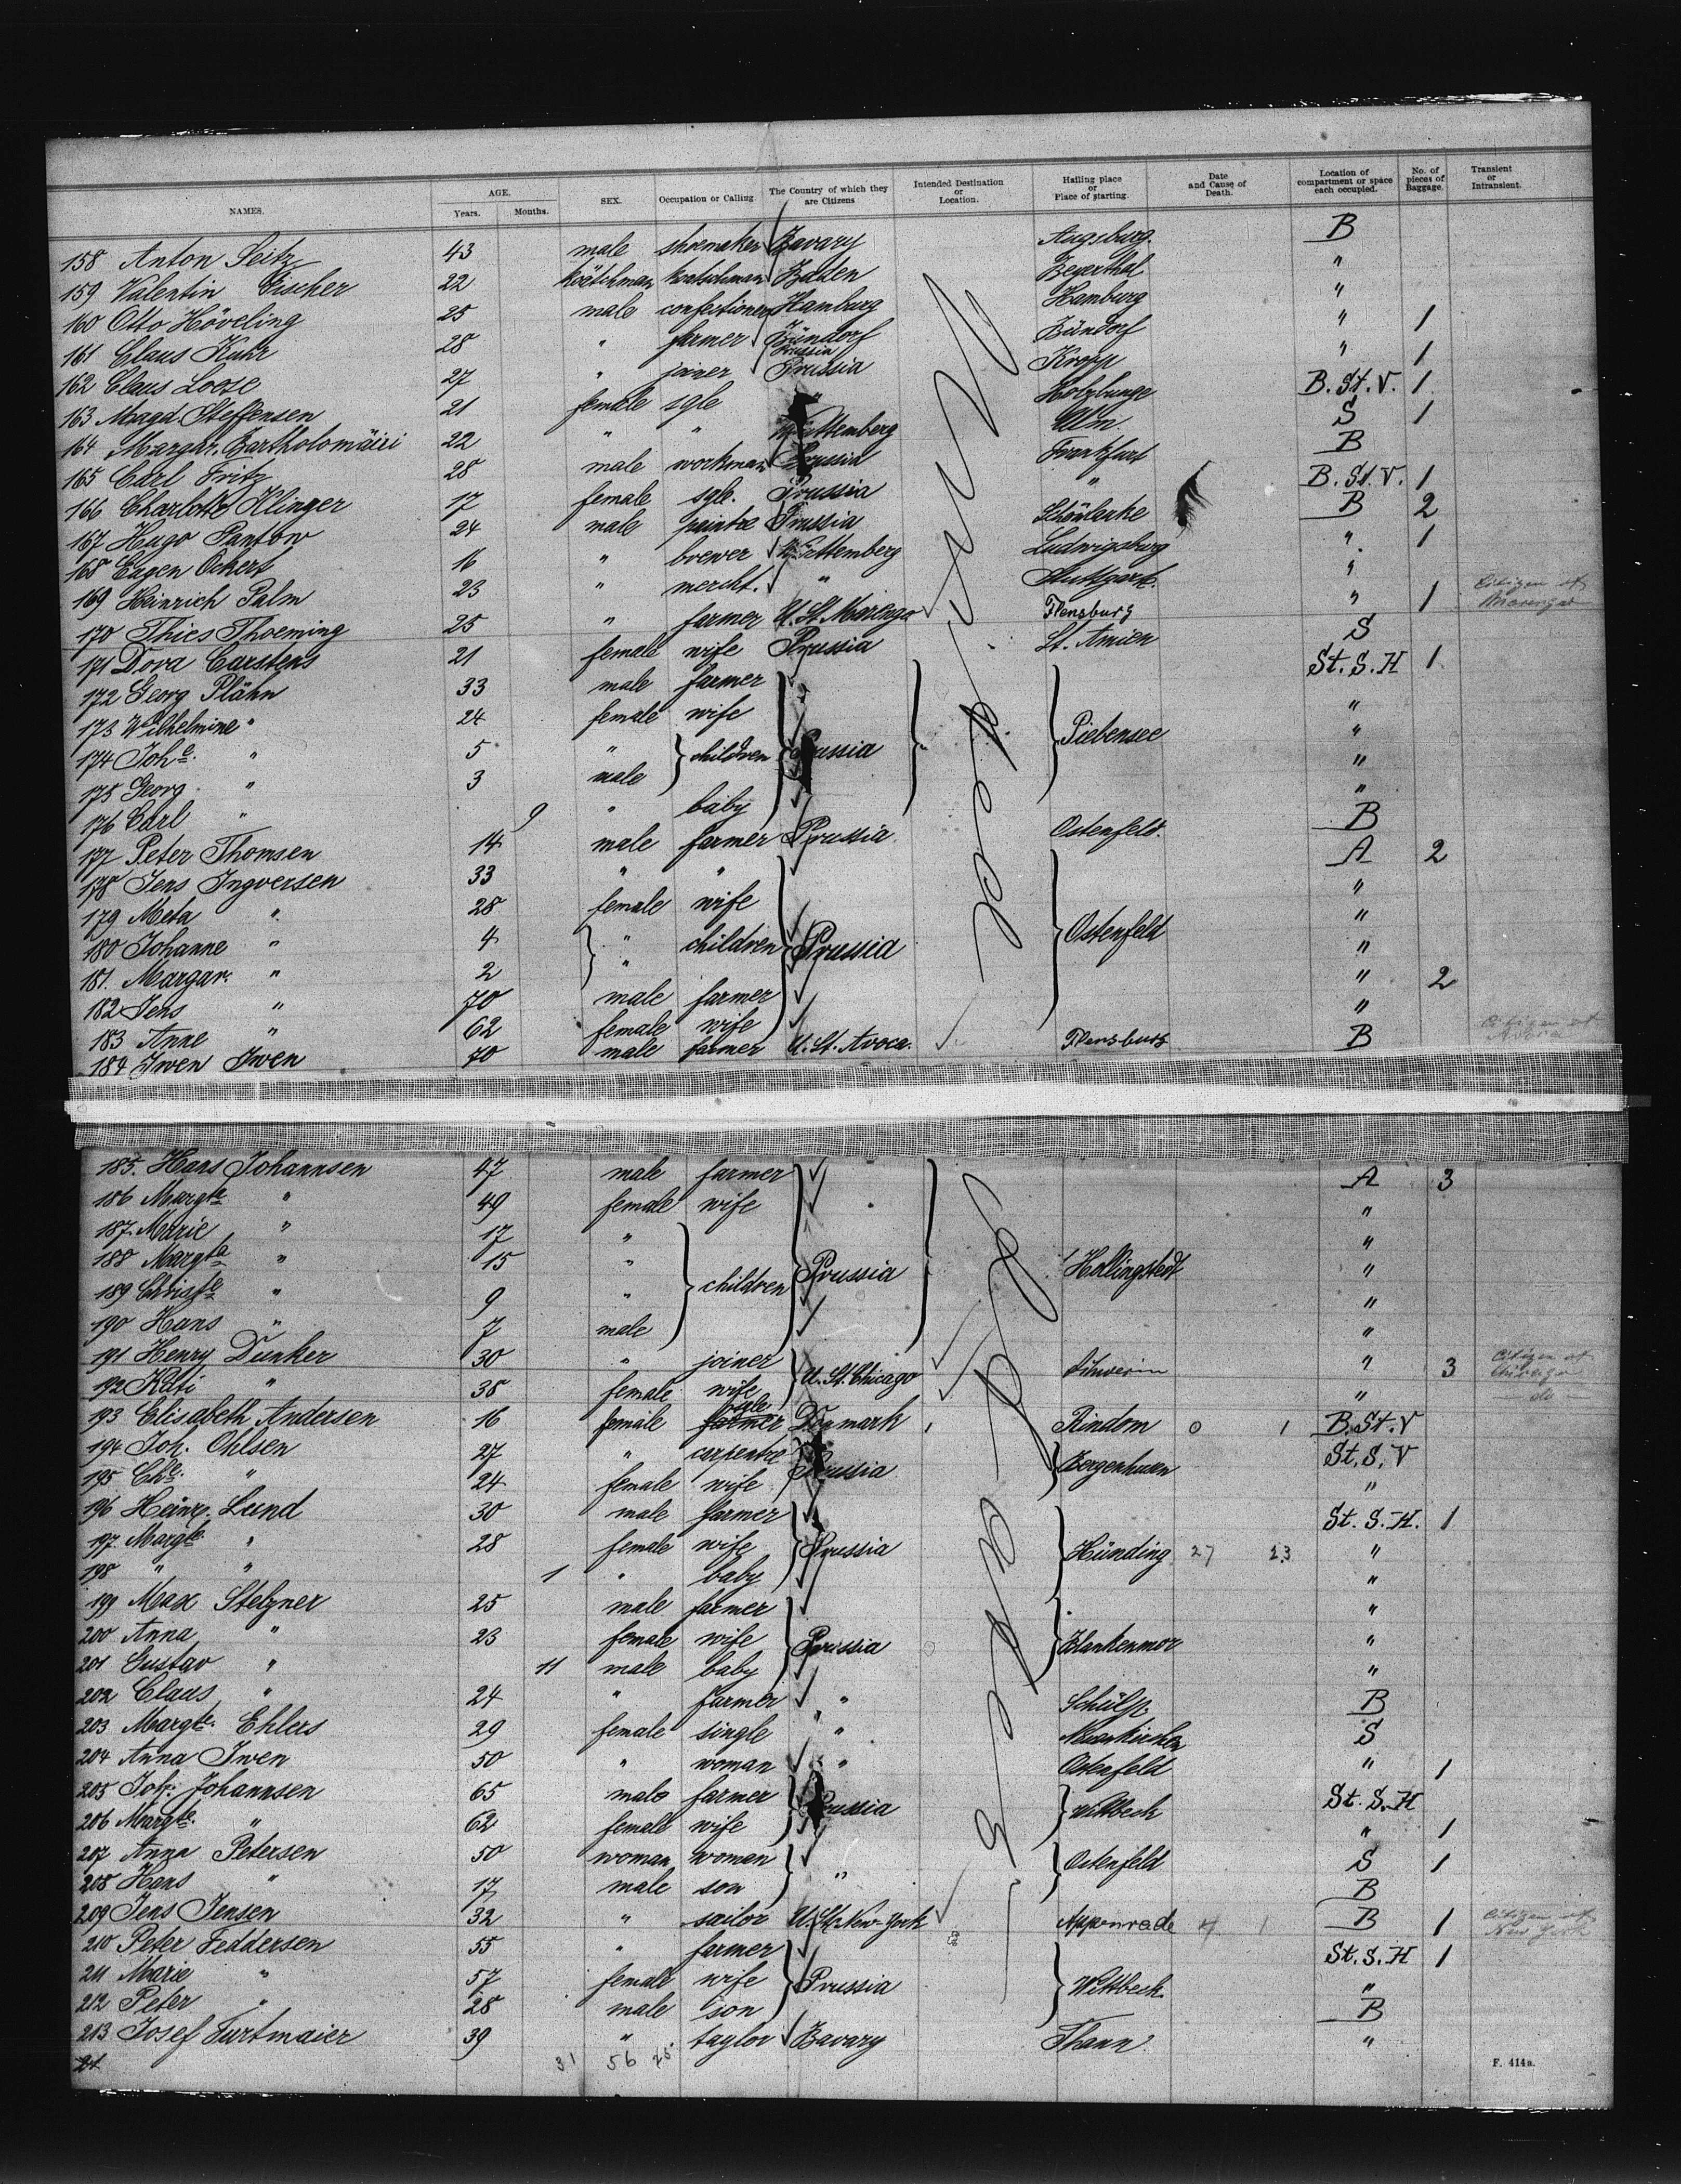 NAMES. AGE. Years. Months. SEX. Occupation or Calling The Country of which they are Citizens Intended Destination or Location. Hailing place or Place of starting. Date and Cause of Death. Location of compartment or space each occupied. No. of pieces of Baggage. Transient or Intransient.
158 Anton Seitz 43 male shoemaker Bavary Augsburg. B
159 Valentin Fischer 22 koetschman koetschman Baden "
160 Otto Höveling 25 male confectioner Hamburg Hamburg "
161 Claus Kuhr 28 " farmer Bündorf Prussia Bündorf " 1
162 Claus Loose 27 " joiner Prussia Kropp " 1
163 Magd. Steffensen 21 female sgle " Holzbunge B. St. V. 1
164 Margar. Bartholomäiri 22 " " Württemberg Ulm S 1
165 Carl Fritz 28 male workman Prussia Frankfurt B
166 Charlotte Klinger 17 female sgle. Prussia " B. St. V. 1
167 Hugo Pantow 24 male paintre Prussia Schönlanke B 2
168 Eugen Ockert 16 " brewer Württemberg Ludwigsburg " 1
169 Heinrich Palm 23 " mercht. " Stuttgart. "
170 Thies Thoeming 25 " farmer U. St. Marengo Flensburg " 1 Citizen of Marengo
171 Dora Carstens 21 female wife Prussia St. Annen S
172 Georg Plähn 33 male farmer St. S. H 1
173 Wilhelmine " 24 female wife "
174 Johe. " 5 " children Prussia Piebensee "
175 Georg " 3 male "
176 Carl " 9 " baby "
177 Peter Thomsen 14 male farmer Prussia Ostenfeld. B
178 Jens Ingversen 33 " " A 2
179 Meta " 28 female wife "
180 Johanne " 4 " children Prussia Ostenfeld "
181. Margar. " 2 " "
182 Jens " 70 male farmer " 2
183 Anne " 62 female wife "
184 Iwen Iwen 70 male farmer U. St. Avoca. Flensburg B Citizen of
185. Hans Johannsen 47 male farmer A 3
186 Margte " 49 female wife "
187 Marie " 17 " "
188 Margta " 15 " children Prussia Hollingstedt "
189 Christe " 9 " "
190 Hans " 7 male "
191 Henry Dunker 30 " joiner U. St. Chicago Schwerin " 3 Citizen of Chicago
192 Käti " 38 female wife " do
193 Elisabeth Andersen 16 female farmer sgle Denmark Rindom 0 1 B. St. V
194 Joh. Ohlsen 27 " carpentre Prussia Bergenhusen St. S. V
195 Che. " 24 female wife "
196 Heinr. Lund 30 male farmer St. S. H. 1
197 Margte " 28 female wife Prussia Hünding 27 23 "
198 " " 1 " baby "
199 Max Stelzner 25 male farmer "
200 Anna " 23 female wife Prussia Blankenmor "
201 Gustav " 11 male baby "
202 Claus " 24 " farmer " Schülp B
203 Margte. Ehlers 29 female single " S
204 Anna Iwen 50 " woman " Ostenfeld " 1
205 Joh. Johannsen 65 male farmer Prussia Wittbeck St. S. H
206 Margte. " 62 female wife " 1
207 Anna Petersen 50 woman woman " Ostenfeld S 1
208 Hans " 17 male son B
209 Jens Jensen 32 " sailor U. St. New-York Appenrade 4 1 B 1 Citizen of New York
210 Peter Feddersen 55 " farmer St. S. H 1
211 Marie " 57 female wife Prussia Wittbeck "
212 Peter " 28 male son B
213 Josef Furtmaier 39 " taylor Bavary Thann. "
21 31 56 25
F. 414a.